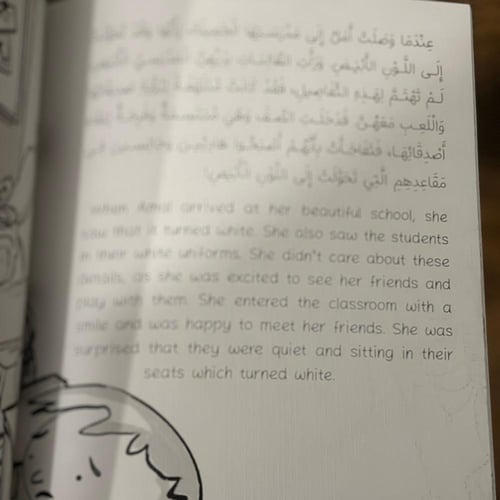 عِنْدَمَا وَصَلَتْ أَمَلُ إِلَى مَدْرَسَتِهَا
إِلَى اللَّوْنِ الْأَبْيَضِ وَرَأَتِ
لَمْ تَهْتَمَّ لِهَذِهِ التَّفَاصِيلِ، فَقَدْ كَانَتْ
وَاللَّعِبِ مَعَهُنَّ فَدَخَلَتِ الصَّفَّ وَهِيَ مُبْتَسِمَةٌ
أَصْدِقَائِهَا، فَتَفَاجَأَتْ بِأَنَّهُمْ أَصْبَحُوا هَادِئِينَ
مَقَاعِدِهِمِ الَّتِي تَحَوَّلَتْ إِلَى اللَّوْنِ الْأَبْيَضِ!
When Amal arrived at her beautiful school, she
saw that it turned white. She also saw the students
in their white uniforms. She didn't care about these
details, as she was excited to see her friends and
play with them. She entered the classroom with a
smile and was happy to meet her friends. She was
surprised that they were quiet and sitting in their
seats which turned white.